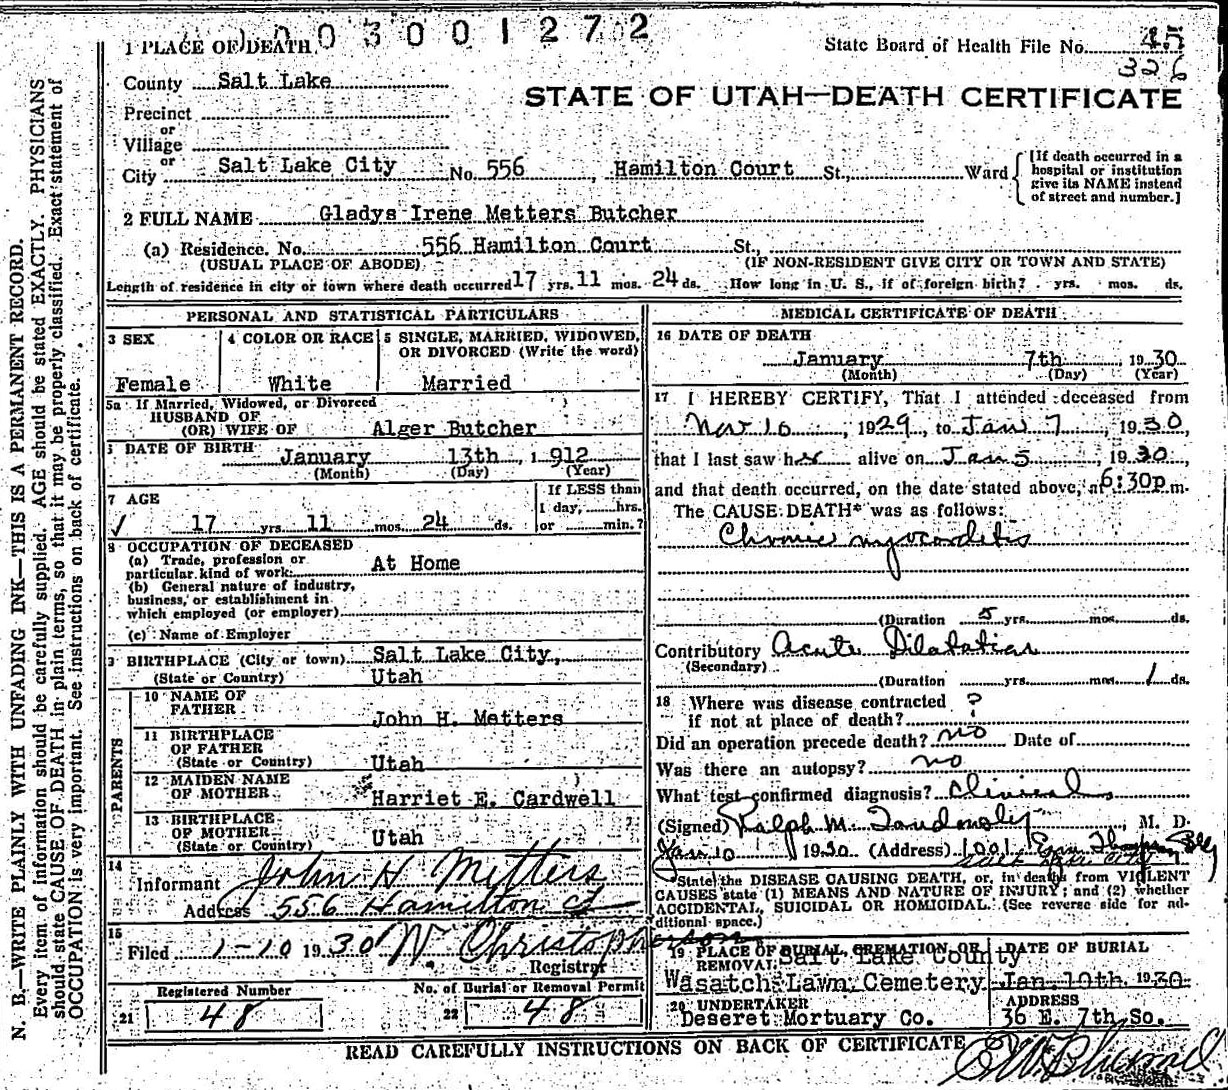 003001272
1 PLACE OF DEATH
State Board of Health File No. 45
326
County Salt Lake
STATE OF UTAH—DEATH CERTIFICATE
Precinct
or
Village
or
City Salt Lake City No. 556, Hamilton Court St., Ward
[If death occurred in a hospital or institution give its NAME instead of street and number.]
2 FULL NAME Gladys Irene Metters Butcher
(a) Residence. No. 556 Hamilton Court St.,
(USUAL PLACE OF ABODE) (IF NON-RESIDENT GIVE CITY OR TOWN AND STATE)
Length of residence in city or town where death occurred 17 yrs. 11 mos. 24 ds. How long in U. S., if of foreign birth? yrs. mos. ds.
PERSONAL AND STATISTICAL PARTICULARS
3 SEX
Female
4 COLOR OR RACE
White
5 SINGLE, MARRIED, WIDOWED, OR DIVORCED (Write the word)
Married
5a If Married, Widowed, or Divorced
HUSBAND OF
(OR) WIFE OF Alger Butcher
6 DATE OF BIRTH January 13th, 1912
(Month) (Day) (Year)
7 AGE
17 yrs. 11 mos. 24 ds.
If LESS than
1 day, hrs.
or min.?
8 OCCUPATION OF DECEASED
(a) Trade, profession or
particular kind of work At Home
(b) General nature of industry,
business, or establishment in
which employed (or employer)
(c) Name of Employer
9 BIRTHPLACE (City or town) Salt Lake City,
(State or Country) Utah
PARENTS
10 NAME OF
FATHER John H. Metters
11 BIRTHPLACE
OF FATHER
(State or Country) Utah
12 MAIDEN NAME
OF MOTHER Harriet E. Cardwell
13 BIRTHPLACE
OF MOTHER
(State or Country) Utah
14
Informant John H Metters
Address 556 Hamilton Ct
15
Filed 1-10 1930 W. Christopherson
Registrar
Registered Number
21 48
No. of Burial or Removal Permit
22 48
MEDICAL CERTIFICATE OF DEATH
16 DATE OF DEATH
January 7th 1930
(Month) (Day) (Year)
17 I HEREBY CERTIFY, That I attended deceased from
Nov 10, 1929, to Jan 7, 1930,
that I last saw her alive on Jan 5 1930,
and that death occurred, on the date stated above, at 6:30 p m.
The CAUSE DEATH* was as follows:
Chronic myocarditis
(Duration 5 yrs. mos. ds.
Contributory Acute Dilatation
(Secondary)
(Duration yrs. mos. 1 ds.
18 Where was disease contracted
if not at place of death? ?
Did an operation precede death? no Date of
Was there an autopsy? no
What test confirmed diagnosis? Clinical
(Signed) Ralph M., M. D.
Jan 10 1930 (Address) 1001
Salt Lake City
*State the DISEASE CAUSING DEATH, or, in deaths from VIOLENT
CAUSES state (1) MEANS AND NATURE OF INJURY; and (2) whether
ACCIDENTAL, SUICIDAL OR HOMICIDAL. (See reverse side for additional space.)
19 PLACE OF BURIAL, CREMATION, OR
REMOVAL Salt Lake County
Wasatch Lawn Cemetery
DATE OF BURIAL
Jan. 10th 1930
20 UNDERTAKER
Deseret Mortuary Co.
ADDRESS
36 E. 7th So.
READ CAREFULLY INSTRUCTIONS ON BACK OF CERTIFICATE
N. B.—WRITE PLAINLY WITH UNFADING INK—THIS IS A PERMANENT RECORD.
Every item of information should be carefully supplied. AGE should be stated EXACTLY. PHYSICIANS
should state CAUSE OF DEATH in plain terms, so that it may be properly classified. Exact statement of
OCCUPATION is very important. See instructions on back of certificate.